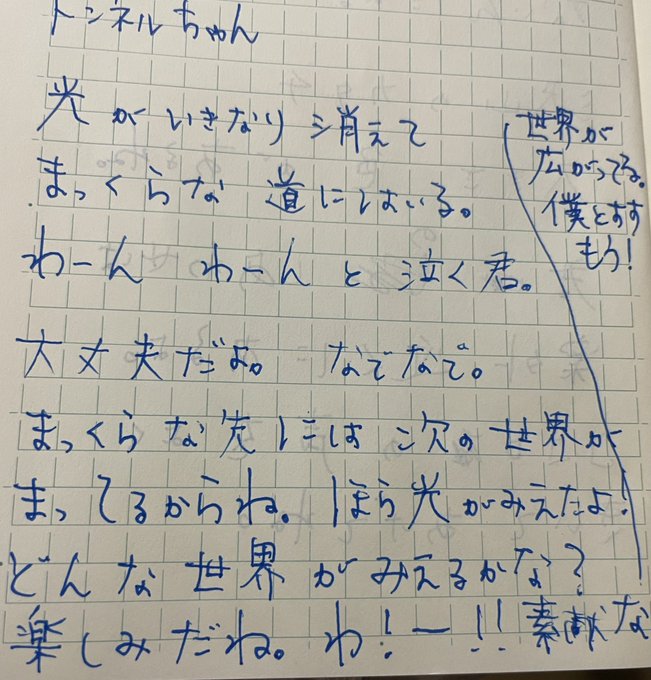 トンネルちゃん
光がいきなり消えて
まっくらな道にはいる。
わーん わーんと泣く君。
大丈夫だよ。なでなで。
まっくらな先には次の世界が
まってるからね。ほら光がみえたよ!
どんな世界がみえるかな?
楽しみだね。わ!ー!!素敵な
世界が
広がってる。
僕とすす
もう!